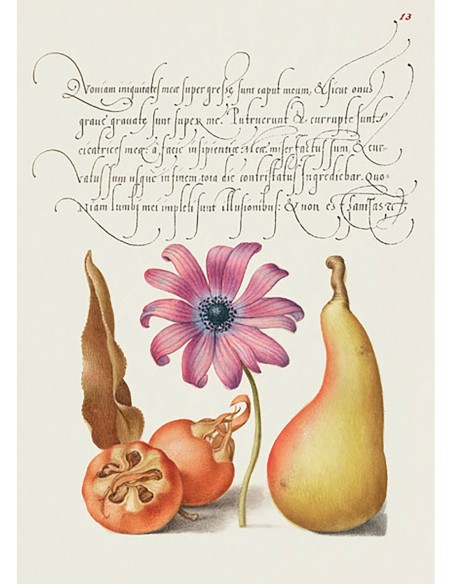 13
Quoniam iniquitates meæ supergressę sunt caput meum, & sicut onus
graue grauatę sunt super me. Putruerunt & corruptę sunt
cicatrices meę: a facie insipientię Meæ miser factus sum & cur-
Vatus sum usque in finem: tota die contristatus ingrediebar. Quo-
Niam lumbi mei impleti sunt illusionibus: & non est sanitas